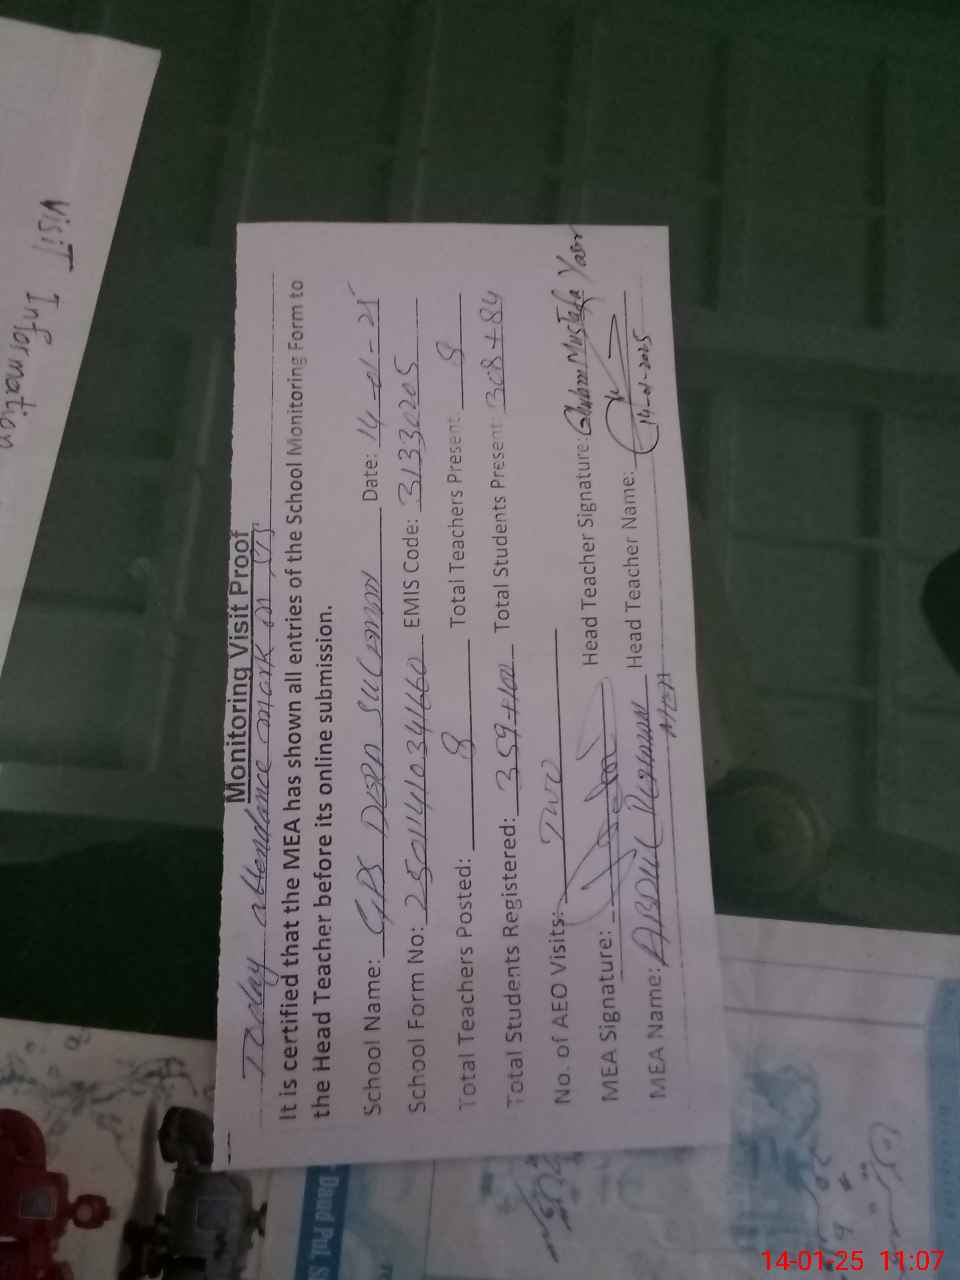 Monitoring Visit Proof
Today attendance mark on SIS
It is certified that the MEA has shown all entries of the School Monitoring Form to
the Head Teacher before its online submission.
School Name: GPS Date: 14-01-25
School Form No: EMIS Code: 31330205
Total Teachers Posted: 8 Total Teachers Present: 8
Total Students Registered: 359+ Total Students Present: 308+84
No. of AEO Visits: Two
MEA Signature: Head Teacher Signature: Ghulam Mustafa Yasir
MEA Name: ABDUL Rehman Head Teacher Name:
MEA
14-01-2025
Visit Information
Daud Ptd. S
14-01-25 11:07